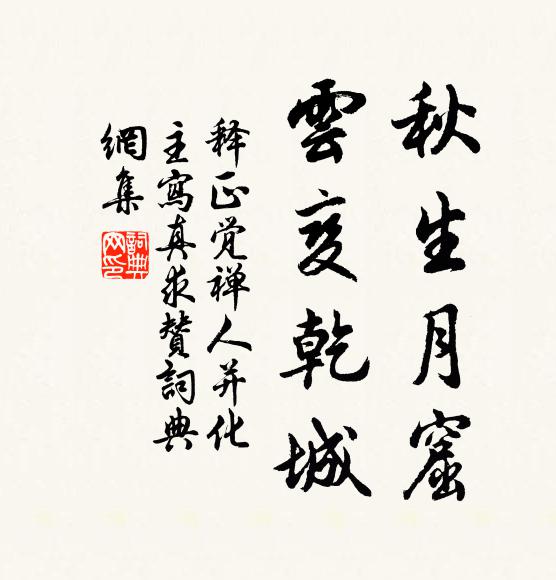 秋生月窟
雲变乾城
释正觉禅人并化
主寫真求贊詞典
網集
詞典網印